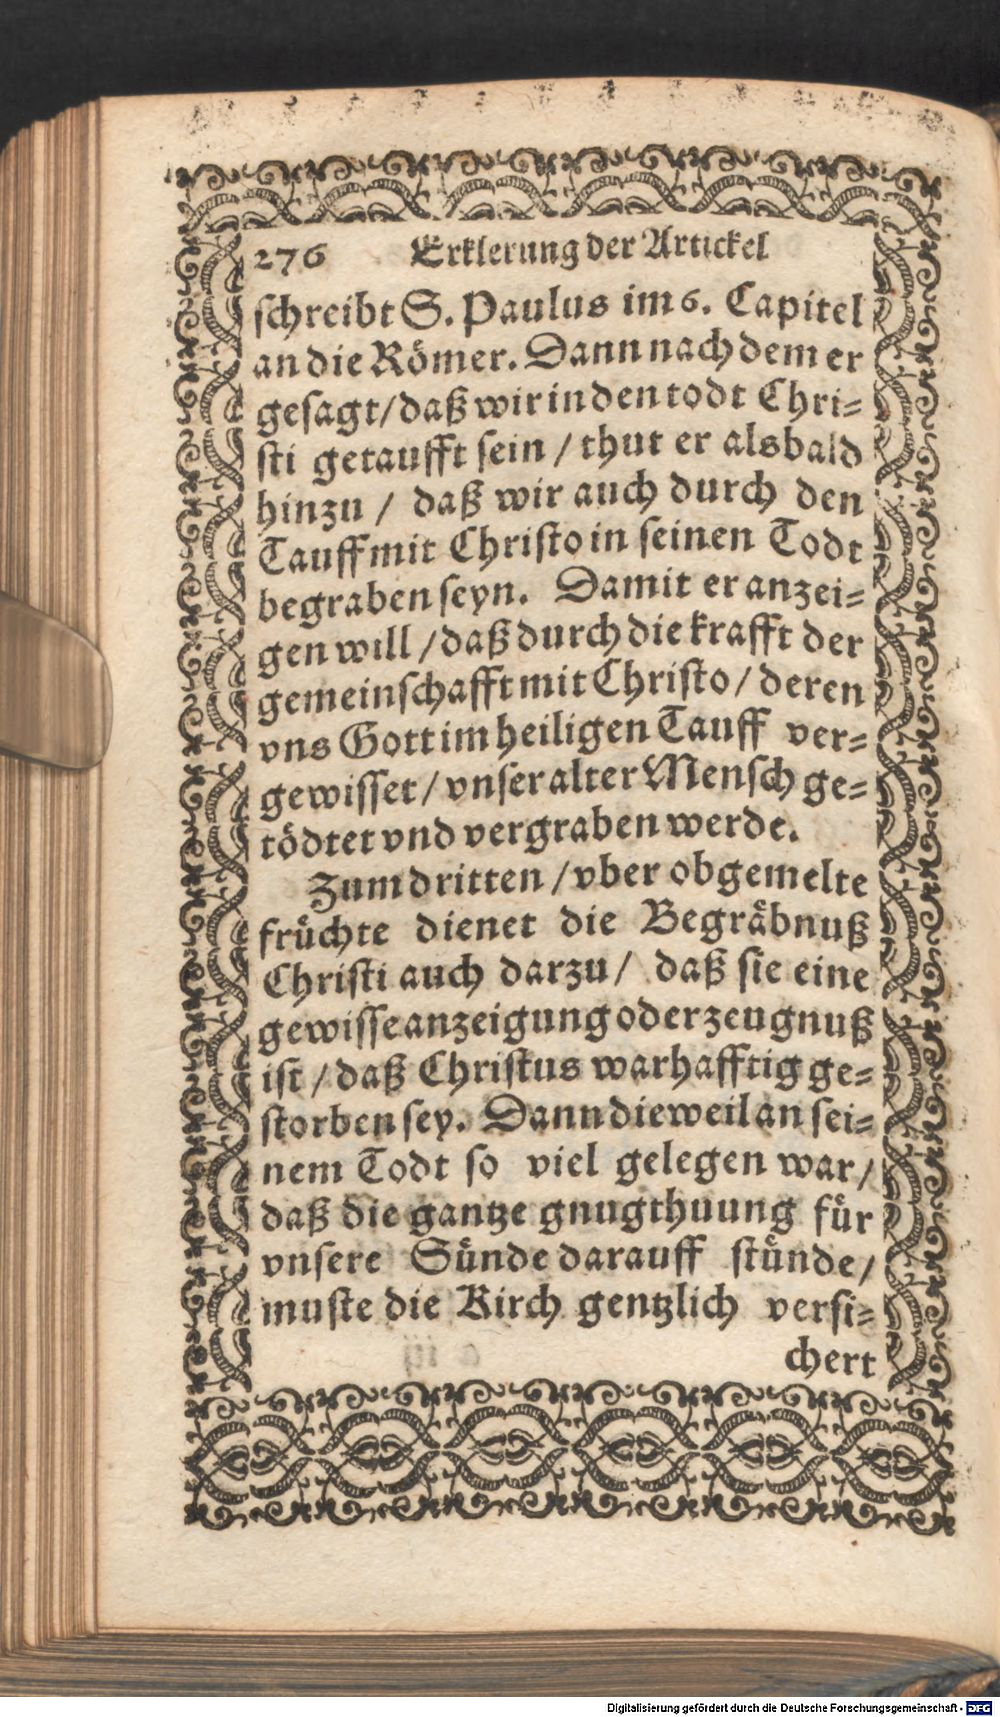 276 Erklerung der Artickel
schreibt S. Paulus im 6. Capitel
an die Römer. Dann nach dem er
gesagt/ daß wir in den todt Chri-
sti getaufft sein / thut er alsbald
hinzu / daß wir auch durch den
Tauff mit Christo in seinen Todt
begraben seyn. Damit er anzei-
gen will / daß durch die krafft der
gemeinschafft mit Christo / deren
vns Gott im heiligen Tauff ver-
gewisset / vnser alter Mensch ge-
tödtet vnd vergraben werde.
Zum dritten / vber obgemelte
früchte dienet die Begräbnuß
Christi auch darzu / daß sie eine
gewisse anzeigung oder zeugnuß
ist / daß Christus warhafftig ge-
storben sey. Dann dieweil an sei-
nem Todt so viel gelegen war /
daß die gantze gnugthuung für
vnsere Sünde darauff stünde /
muste die Kirch gentzlich versi-
chert
Digitalisierung gefördert durch die Deutsche Forschungsgemeinschaft - DFG